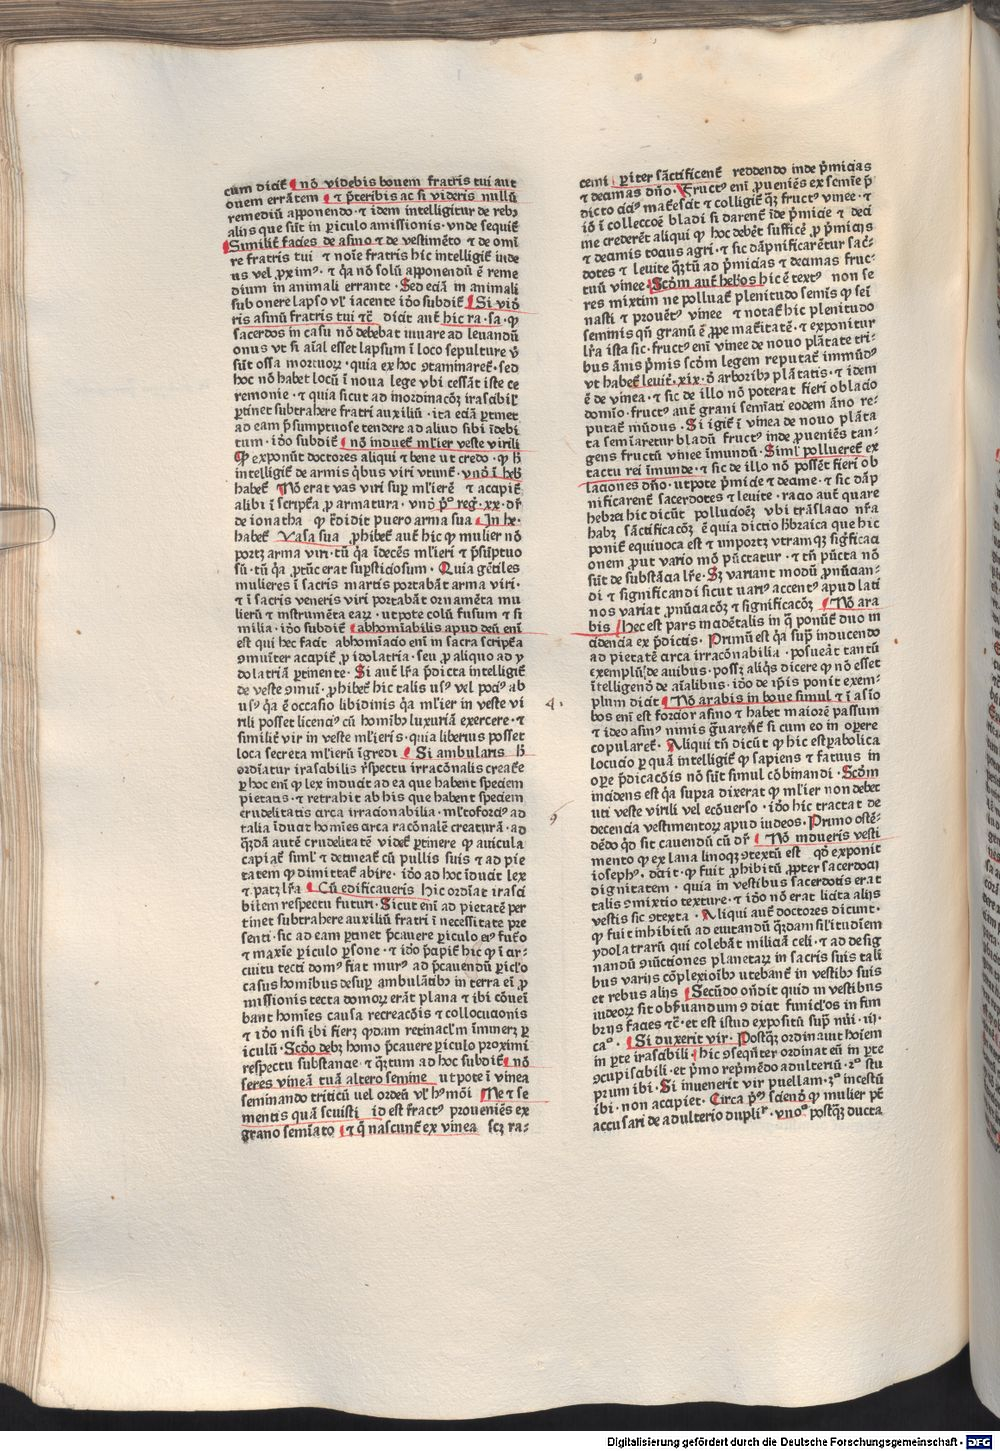 cum dicit̄ nō videbis bouem fratris tui aut
ouem errātem ⁊ p̄teribis ac si videris nullū
remediū apponendo · ⁊ idem intelligitur de rebꝰ
alijs que sūt in ꝑiculo amissionis · vnde sequit̄
Similit̄ facies de asino ⁊ de vestimēto ⁊ de om̄i
re fratris tui ⁊ noīe fratris hic intelligit̄ iude
us vel ꝓximꝰ · ⁊ q̄a nō solū apponendū ē reme
dium in animali errante · Sed eciā in animali
sub onere lapso vl̓ iacente iđo subdit̄ Si vid̓
ris asinū fratris tui ⁊c̄ dicit aut̄ hic ra · sa · ꝙ
sacerdos in casu nō debebat iuuare ad leuandū
onus vt si aīal esset lapsum ī loco sepulture vƀ
sūt ossa mortuoꝝ · quia ex hoc ꝯtaminaret̄ · sed
hoc nō habet locū ī noua lege vbi cessāt iste ce
remonie · ⁊ quia sicut ad inordinacōꝫ irascibil̓
ꝑtinet subtrahere fratri auxiliū · ita eciā ꝑtinet
ad eam p̄sumptuose tendere ad aliud sibi īdebi
tum · iđo subdit̄ nō induet̄ ml̓ier veste virili
Qđ exponūt doctores aliqui ⁊ bene ut credo · ꝙ ƀ
intelligit̄ de armis q̄bus viri vtunt̄ · vnđ ī heƀ
habet̄ Nō erat vas viri suꝑ ml̓ierē ⁊ accipit̄
alibi ī scriptͣa ꝓ armatura · vnđ pͦ reg̓ · xx · dr̄
de ionatha ꝙ t̓didit puero arma sua · In he ·
habet̄ Vasa sua ꝓhibet̄ aut̄ hic ꝙ mulier nō
portꝫ arma viri · tū q̄a īdecēs ml̓ieri ⁊ p̄sūptuo
sū · tū q̄a ꝓ tūc erat suꝑsticiosum · Quia gētiles
mulieres ī sacris martis portabāt arma viri ·
⁊ ī sacris veneris viri portabāt ornamēta mu
lierū ⁊ instrumēta eaꝝ · utpote colū fusum ⁊ si
milia · iđo subdit̄ abhomīabilis apud deū enī
est qui hec facit abhomīacio enī in sacra scriptͣa
ꝯmuīter accipit̄ ꝓ idolatria · seu ꝓ aliquo ad y
dolatriā ꝑtinente · Si aut̄ lr̄a p̄dicta intelligit̄
de veste ꝯmuī · ꝓhibet̄ hic talis usꝰ vel pociꝰ ab
usꝰ q̄a ē occasio libidinis q̄a ml̓ier in veste vi
rili posset licenciꝰ cū homībꝰ luxuriā exercere · ⁊
similit̄ vir in veste ml̓ieris · quia liberius posset
loca secreta ml̓ierū īgredi Si ambulans ƀ
ordīatur irascibilis respectu irracōnalis creatͣe
ꝑ hoc enī ꝙ lex inducit ad ea que habent speciem
pietatis · ⁊ retrahit ab his que habent speciem
crudelitatis circa irracionabilia · ml̓toforciꝰ ad
talia īducit homīes circa racōnalē creaturā · ad
q̄ndā autē crudelitatē videt̄ ꝑtinere ꝙ auicula
capiat̄ siml̓ ⁊ detineat̄ cū pullis suis ⁊ ad pie
tatem ꝙ dimittat̄ abire · iđo ad hoc īducit lex
⁊ patꝫ lr̄a Cū edificaueris hic ordīat irasci
bilem respectu futuri · Sicut enī ad pietatē per
tinet subtrahere auxiliū fratri ī necessitate pre
senti · sic ad eam ꝑtinet p̄cauere ꝑiculo eiꝰ futͦo
⁊ maxīe ꝑiculo ꝑsone · ⁊ iđo p̄cipit̄ hic ꝙ ī cir ·
cuitu tecti domꝰ fiat murꝰ ad p̄cauendū ꝑicl̓o
casus homībus desuꝑ ambulātibꝰ in terra enī ꝓ
missionis tecta domoꝝ erāt plana ⁊ ibi cōueī
bant homīes causa recreacōis ⁊ collocucionis
⁊ iđo nisi ibi fieret qđam retinacl̓m īmineret ꝑ
iculū · Scđo debꝫ homo p̄cauere ꝑiculo proximi
respectu substancie · ⁊ q̄ntum ad hoc subdit̄ nō
seres vineā tuā altero semine utpote ī vinea
seminando triticū uel ordeū vl̓ hꝰmōi Ne ⁊ se
mentis quā seuisti id est fructꝰ proueniēs ex
grano semīato ⁊ q̄ nascunt̄ ex vinea scꝫ ra ⸗
cemi ꝑiter sāctificent̄ reddendo inde p̄micias
⁊ decimas dn̄o · Fructꝰ enī ꝓueniēs ex semīe p̄
dicto ciciꝰ mat̓escit ⁊ colligit̄ qꝫ fructꝰ vinee · ⁊
iđ ī collecōē bladi si darent̄ īde p̄micie ⁊ deci
me crederet̄ aliqui ꝙ hoc debēt sufficē ꝓ p̄micijs
⁊ decimis tocius agri · ⁊ sic dāpnificarētur sac̓ ·
dotes ⁊ leuite q̄ntū ad p̄micias ⁊ decimas fruc ·
tuū vinee · Scđm aut̄ heb̓os hic ē textꝰ non se
res mixtim ne polluat̄ plenitudo semīs ꝙ sei
nasti ⁊ prouētꝰ vinee ⁊ notat̄ hic plenitudo
seminis qn̄ granū ē ꝓpe mat̓itatē · ⁊ exponitur
lr̄a ista sic · fructꝰ enī vinee de nouo plātate tri ·
bus ānis p̄mis scđm legem reputat̄ immūdꝰ
vt habet̄ leuit̄ · xix · đ arboribꝰ plātatis · ⁊ idem
ē de vinea · ⁊ sic de illo nō poterat fieri oblacio
domīo · fructꝰ aut̄ grani semīati eodem āno re ·
putat̄ mūdus · Si igit̄ ī vinea de nouo plāta
ta semīaretur bladū fructꝰ inde ꝓueniēs tan ·
gens fructū vinee īmundū · Siml̓ polluerēt̄ ex
tactu rei īmunde · ⁊ sic de illo nō possēt fieri ob
laciones dn̄o · utpote p̄micie ⁊ decime · ⁊ sic dāp
nificarent̄ sacerdotes ⁊ leuite · racio aut̄ quare
hebrei hic dicūt pollucioēꝫ vbi trāslacio nr̄a
habꝫ sāctificacōꝫ ē quia dictio hƀraica que hic
ponit̄ equiuoca est ⁊ importꝫ vtramqꝫ sig̓ficaci
onem ꝓut vario mō pūctatur · ⁊ tn̄ pūcta nō
sūt de substācia lr̄e · Sꝫ variant modū ꝓnūcian ·
di ⁊ significandi sicut uariꝰ accentꝰ apud lati
nos variat ꝓnūciacōꝫ ⁊ significacōꝫ Nō ara
bis hec est pars incidētalis in q̄ ponūt̄ duo in
cidencia ex p̄dictis · Primū est q̄a sup̄ inducendo
ad pietatē circa irracōnabilia · posueāt tantū
exemplū de auibus · possꝫ aliq̄s dicere ꝙ nō esset
ītelligenđ de aīalibus · iđo de ip̄is ponit exem ·
plum dicit Nō arabis in boue simul ⁊ ī asīo
bos enī est forcior asino ⁊ habet maiorē passum
⁊ ideo asinꝰ nimis g̓uaret̄ si cum eo in opere
copularet̄ · Aliqui tn̄ dicūt ꝙ hic est ꝑabolica
locucio ꝑ quā intelligit̄ ꝙ sapiens ⁊ fatuus in
oꝑe p̄dicacōis nō sūt simul cōbinandi · Scđm
incidens est q̄a supra dixerat ꝙ ml̓ier non debet
uti veste virili vel ecōuerso · iđo hic tractat de
decencia vestimentoꝝ apud iudeos · Primo ostē ·
dēdo qđ sit cauendū cū dr̄ Nō īndueris vesti
mento ꝙ ex lana linoqꝫ ꝯtextū est qđ exponit
iosephꝰ · dicit · ꝙ fuit ꝓhibitū ꝓpter sacerdoci
dignitatem · quia in vestibus sacerdotis erat
talis ꝯmixtio texture · ⁊ iđo nō erat licita alijs
vestis sic ꝯtexta · Aliqui aut̄ doctores dicunt ·
ꝙ fuit inhibitū ad euitandū q̄ndam sil̓itudīem
ydolatrarū qui colebāt miliciā celi · ⁊ ad desig
nandū ꝯiūctiones planetarꝝ in sacris suis tali
bus varijs cōplexioībꝰ utebant̄ in vestibꝰ suis
et rebus alijs Secūdo on̄dit quid in vestibus
iudeoꝝ sit obẜuandum ꝯ dicit funicl̓os in fim
brijs facies ⁊c̄ · et est istud expositū suꝑ nūi · iij ·
caͦ · Si duxerit vir · Postqꝫ ordinauit hoīem
in ꝑte irascibili hic ꝯseq̄nter ordinat eū in ꝑte
ꝯcupiscibili · et p̄mo rep̄mēdo adulteriū · 2ͦ stu
prum ibi · Si inuenerit vir puellam · 3ͦ incestū
ibi · non accipiet · Circa p̄ꝰ sciend̓ ꝙ mulier pt̄
accusari de adulterio duplir̓ · vnoͦ postqꝫ ducta
4 ·
Digitalisierung gefördert durch die Deutsche Forschungsgemeinschaft - DFG